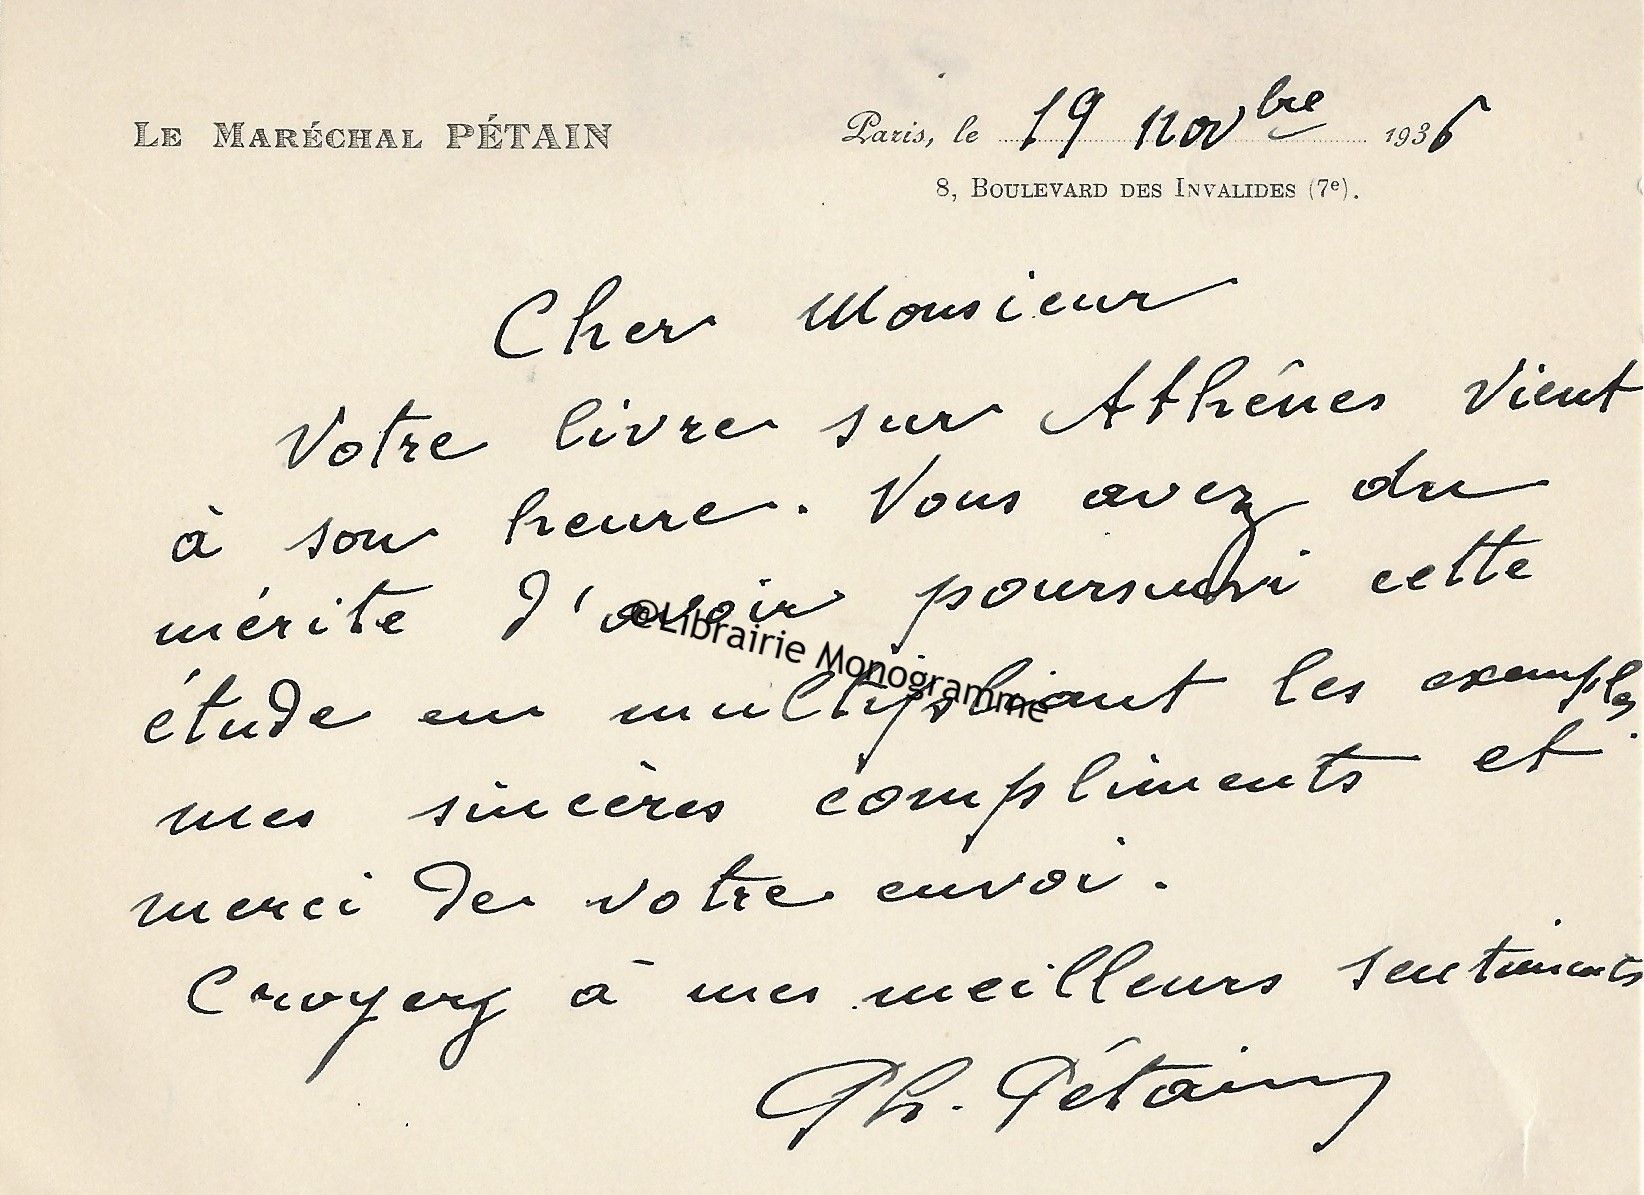 LE MARÉCHAL PÉTAIN
Paris, le 19 novbre 1936
8, BOULEVARD DES INVALIDES (7e).
Cher Monsieur
Votre livre sur Athênes vient
à son heure. Vous avez du
mérite d'avoir poursuivi cette
étude en multipliant les exemples.
mes sincères compliments et
merci de votre envoi.
Croyez à mes meilleurs sentiments
Ph. Pétain
©Librairie Monogramme